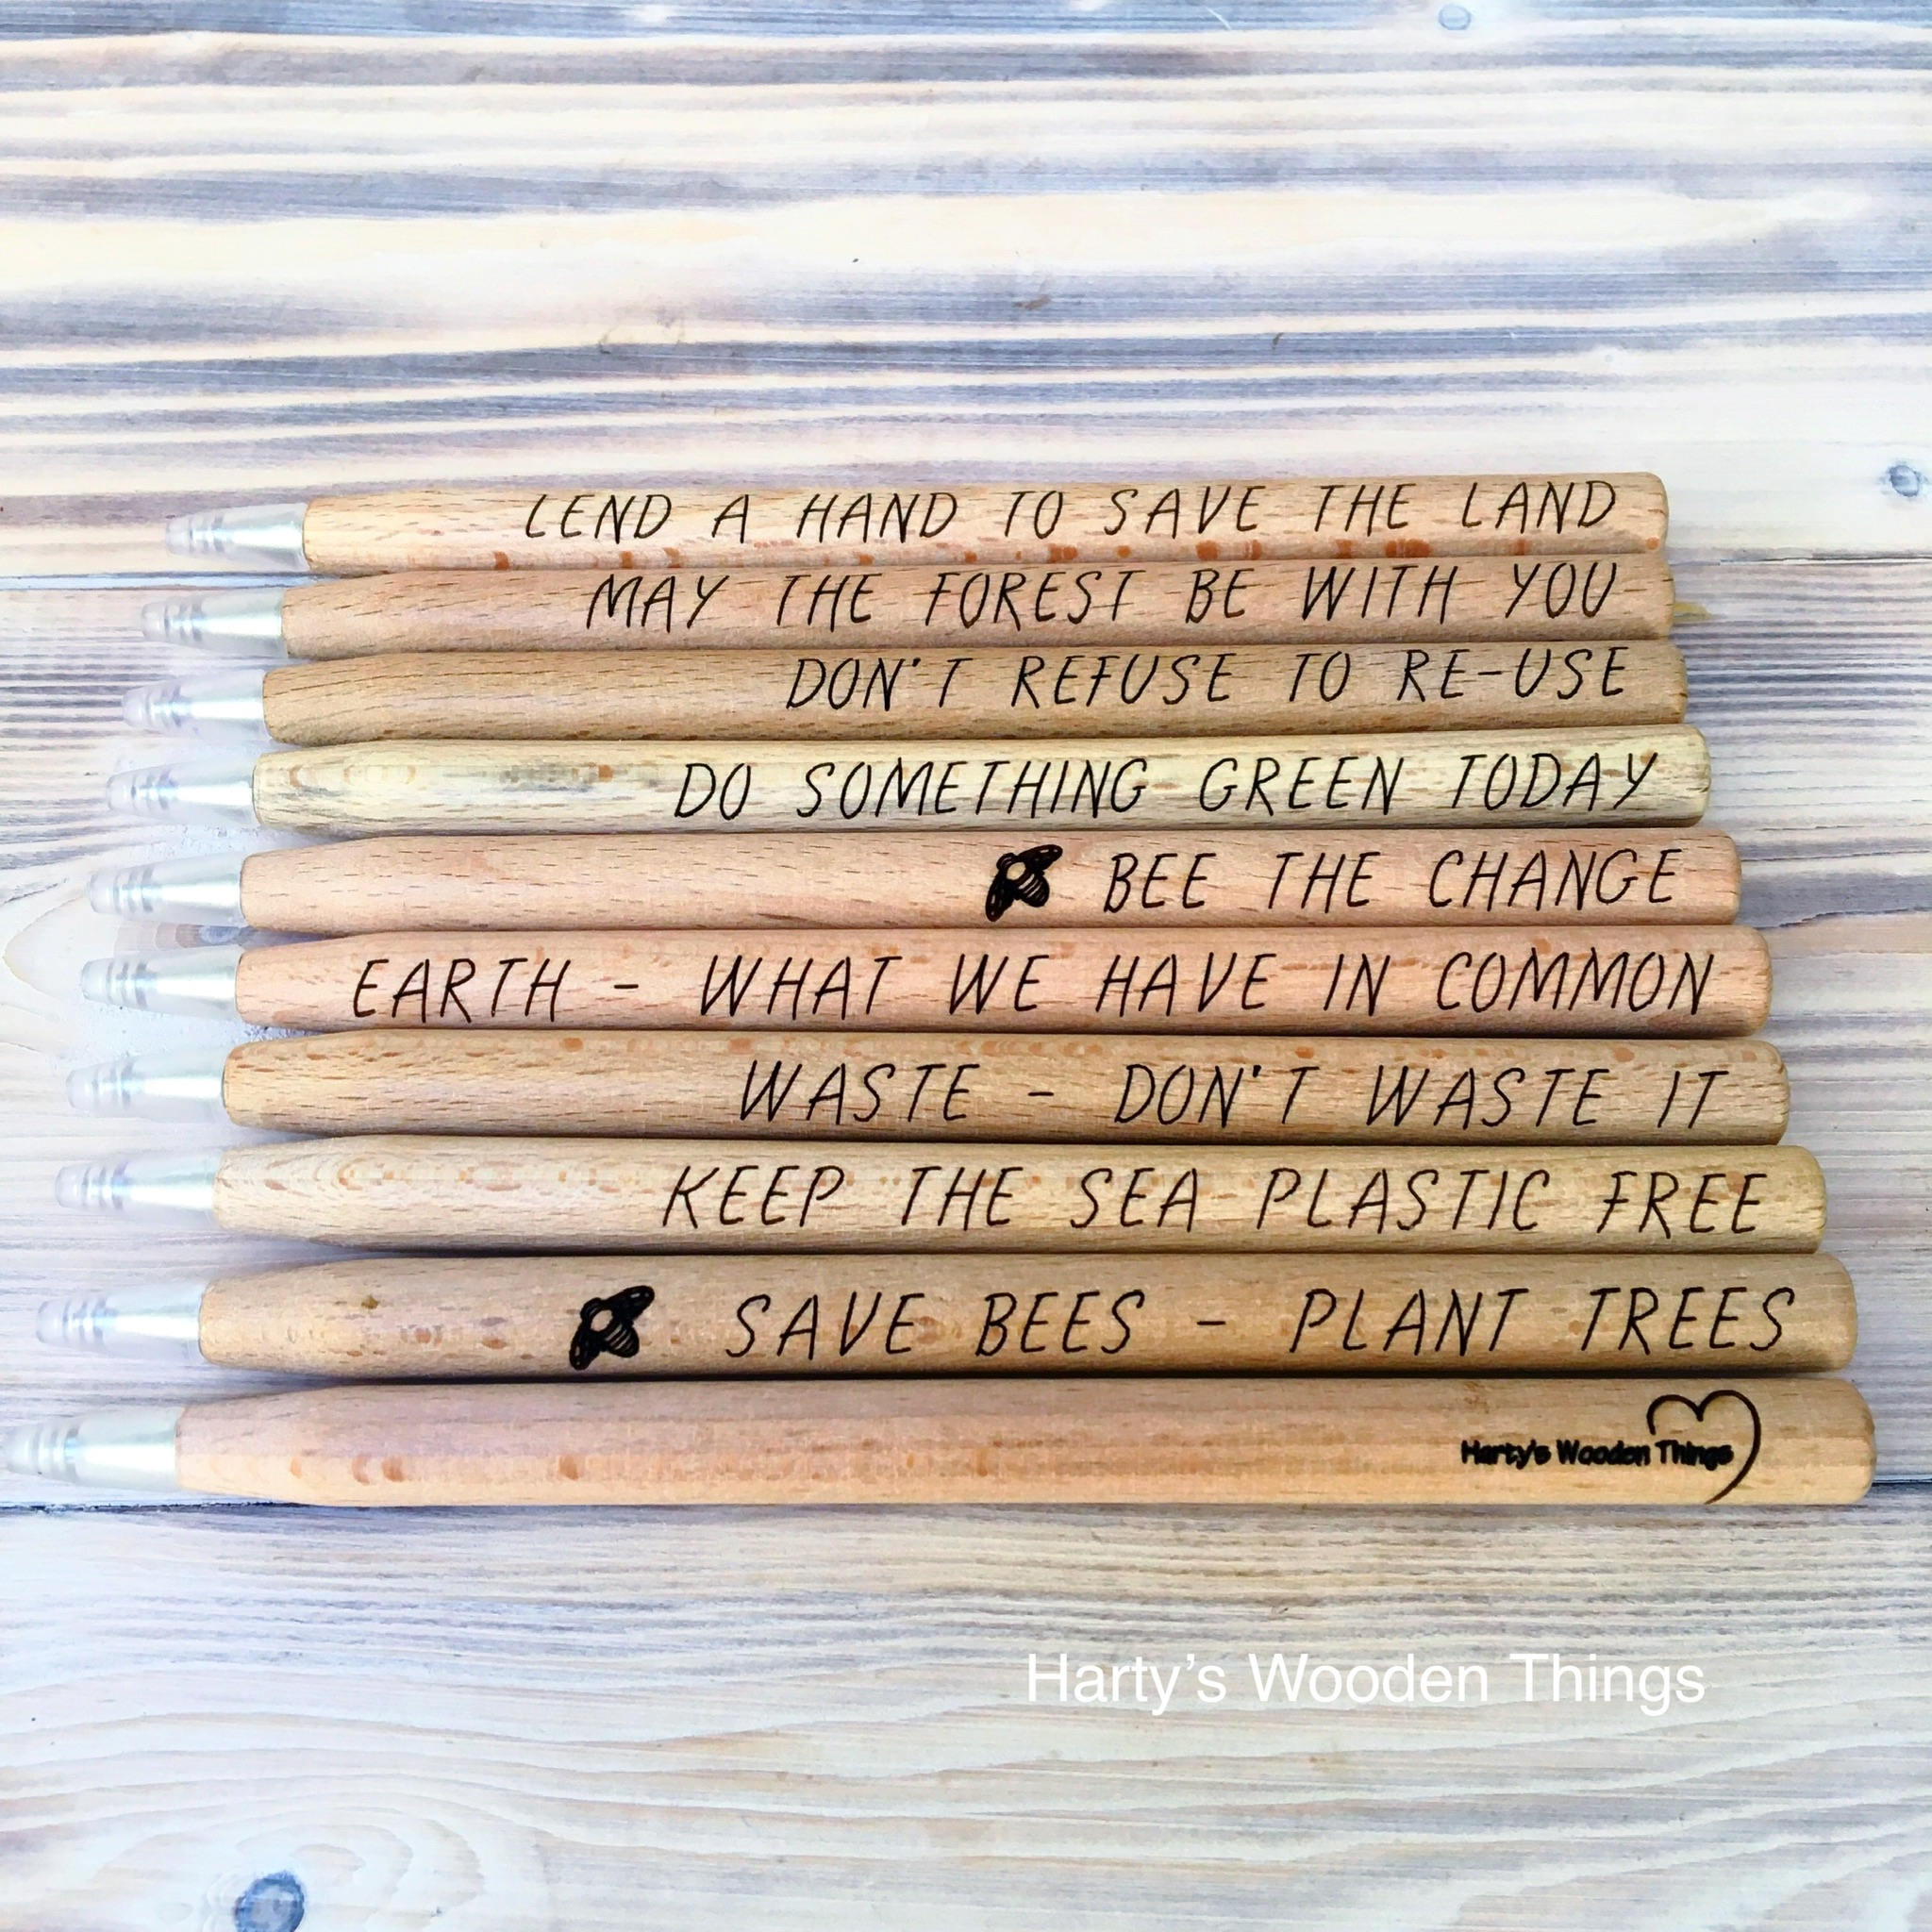 LEND A HAND TO SAVE THE LAND
MAY THE FOREST BE WITH YOU
DON'T REFUSE TO RE-USE
DO SOMETHING GREEN TODAY
BEE THE CHANGE
EARTH - WHAT WE HAVE IN COMMON
WASTE - DON'T WASTE IT
KEEP THE SEA PLASTIC FREE
SAVE BEES - PLANT TREES
Harty's Wooden Things
Harty’s Wooden Things